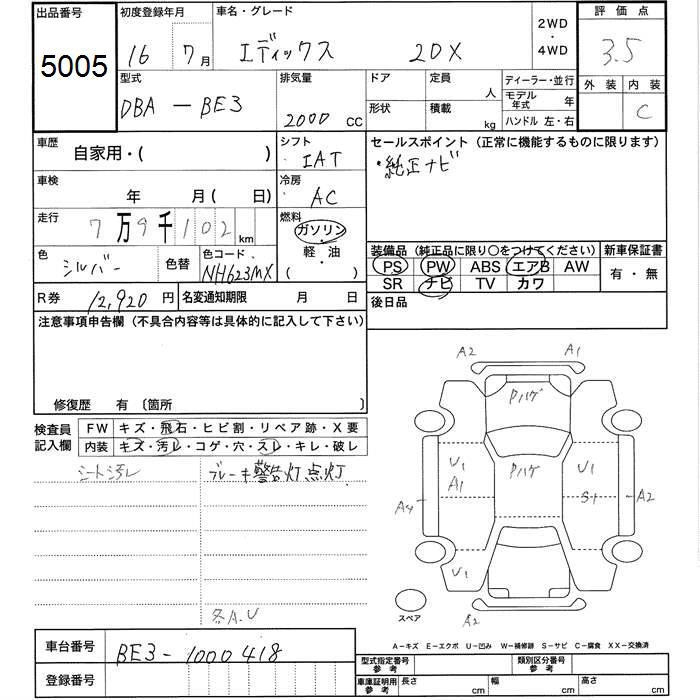 出品番号
5005
初度登録年月
16 7月
車名・グレード
エディックス 20X
2WD
・
4WD
評価点
3.5
外装 内装
C
型式
DBA - BE3
排気量
2000 CC
ドア
形状
定員
人
積載
kg
ディーラー・並行
モデル年式 年
ハンドル 左・右
車歴
自家用・( )
シフト
IAT
セールスポイント (正常に機能するものに限ります)
・純正ナビ
車検
年 月( 日)
冷房
AC
走行
7万9千102km
燃料
ガソリン
軽・油
( )
色
シルバー
色替
色コード
NH623MX
装備品 (純正品に限り○をつけてください)
PS PW ABS エアB AW
SR ナビ TV カワ
新車保証書
有・無
R券 12,920円
名変通知期限 月 日
後日品
注意事項申告欄 (不具合内容等は具体的に記入して下さい)
修復歴 有 〔箇所 〕
検査員
記入欄
FW キズ・飛石・ヒビ割・リペア跡・X要
内装 キズ・汚レ・コゲ・穴・スレ・キレ・破レ
シート汚レ
ブレーキ警告灯点灯
各A.U
A2 A1
Pハゲ
U1
A1
Pハゲ
U1
S+
A4
A2
U1
A2
スペア
A-キズ E-エクボ U-凹み W-補修跡 S-サビ C-腐食 XX-交換済
車台番号
BE3-1000418
登録番号
型式指定番号
参考
類別区分番号
参考
車庫証明用
参考
長さ cm
幅 cm
高さ cm